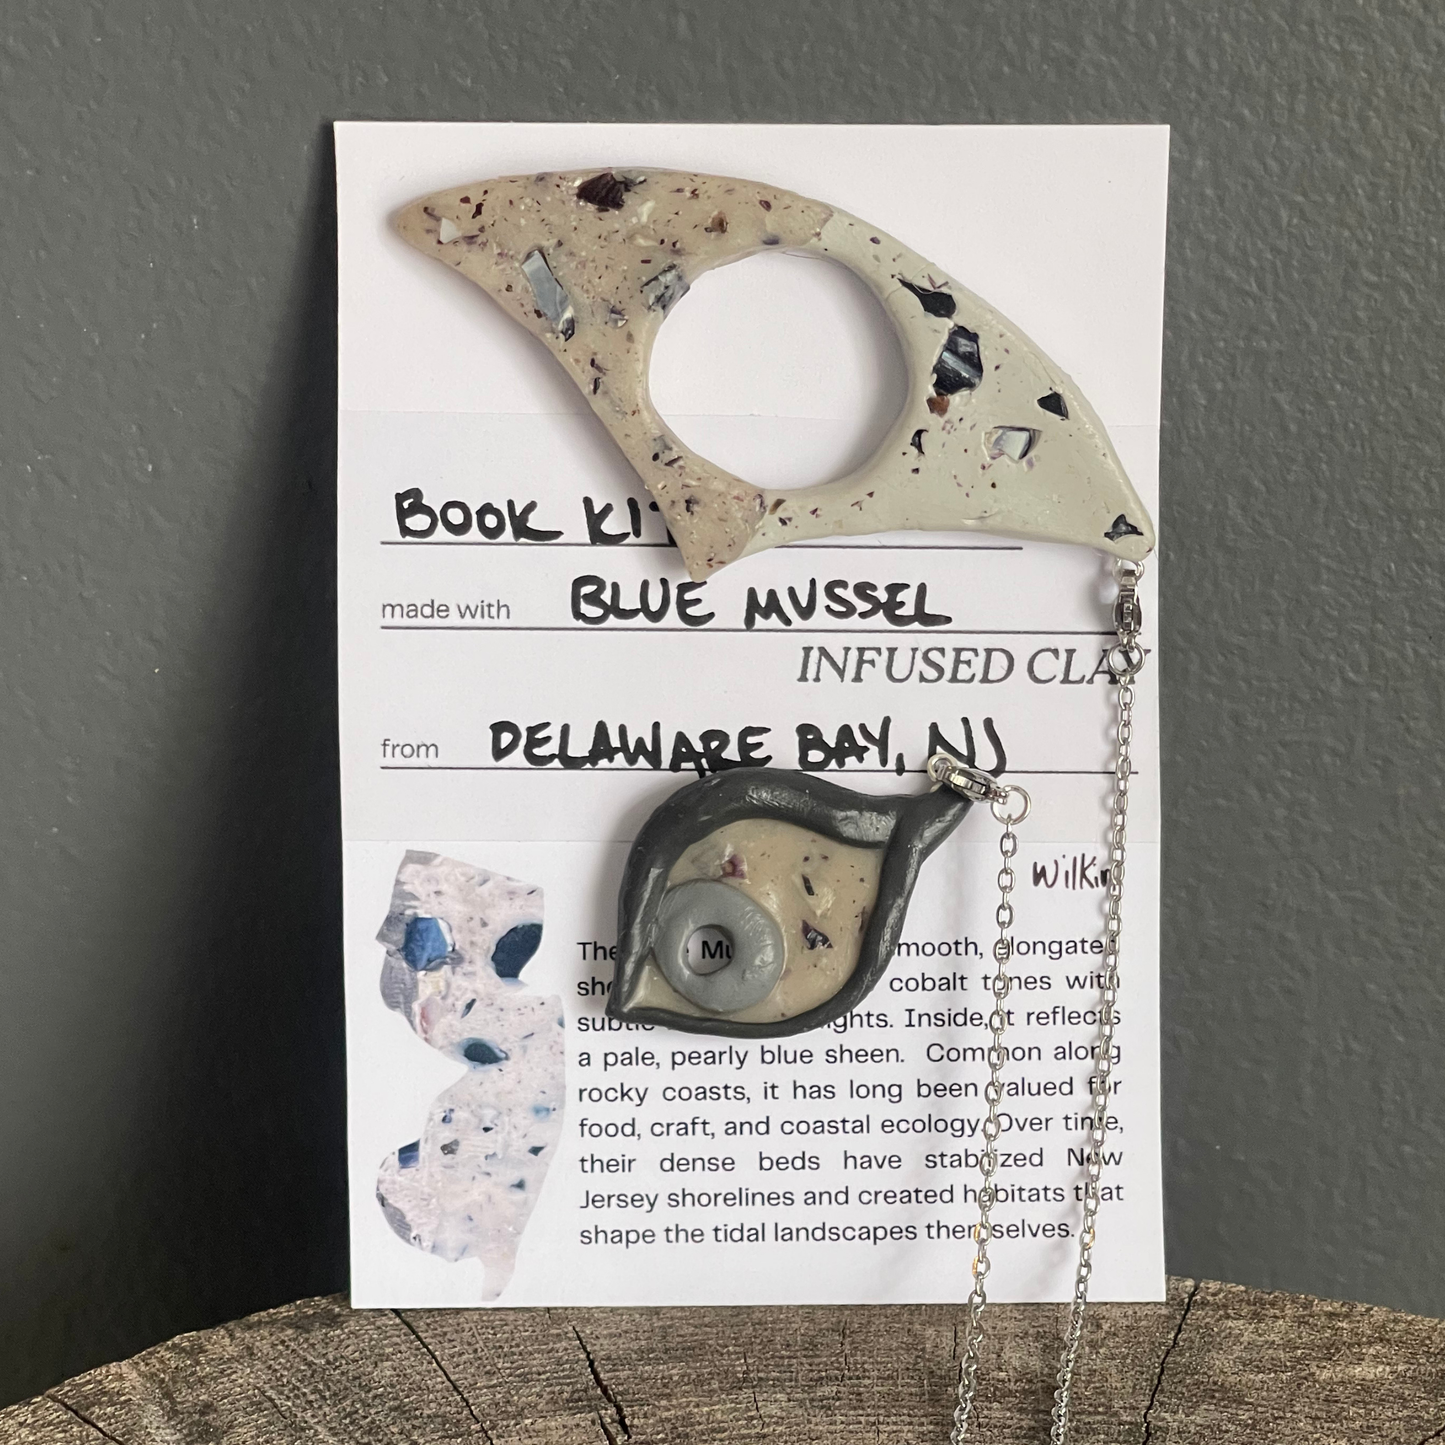 BOOK
made with BLUE MUSSEL
INFUSED CLAY
from DELAWARE BAY, NJ
The Mu mooth, elongated
cobalt tones with
Inside, it reflects
a pale, pearly blue sheen. Common along
rocky coasts, it has long been valued for
food, craft, and coastal ecology. Over time,
their dense beds have stabilized New
Jersey shorelines and created habitats that
shape the tidal landscapes themselves.